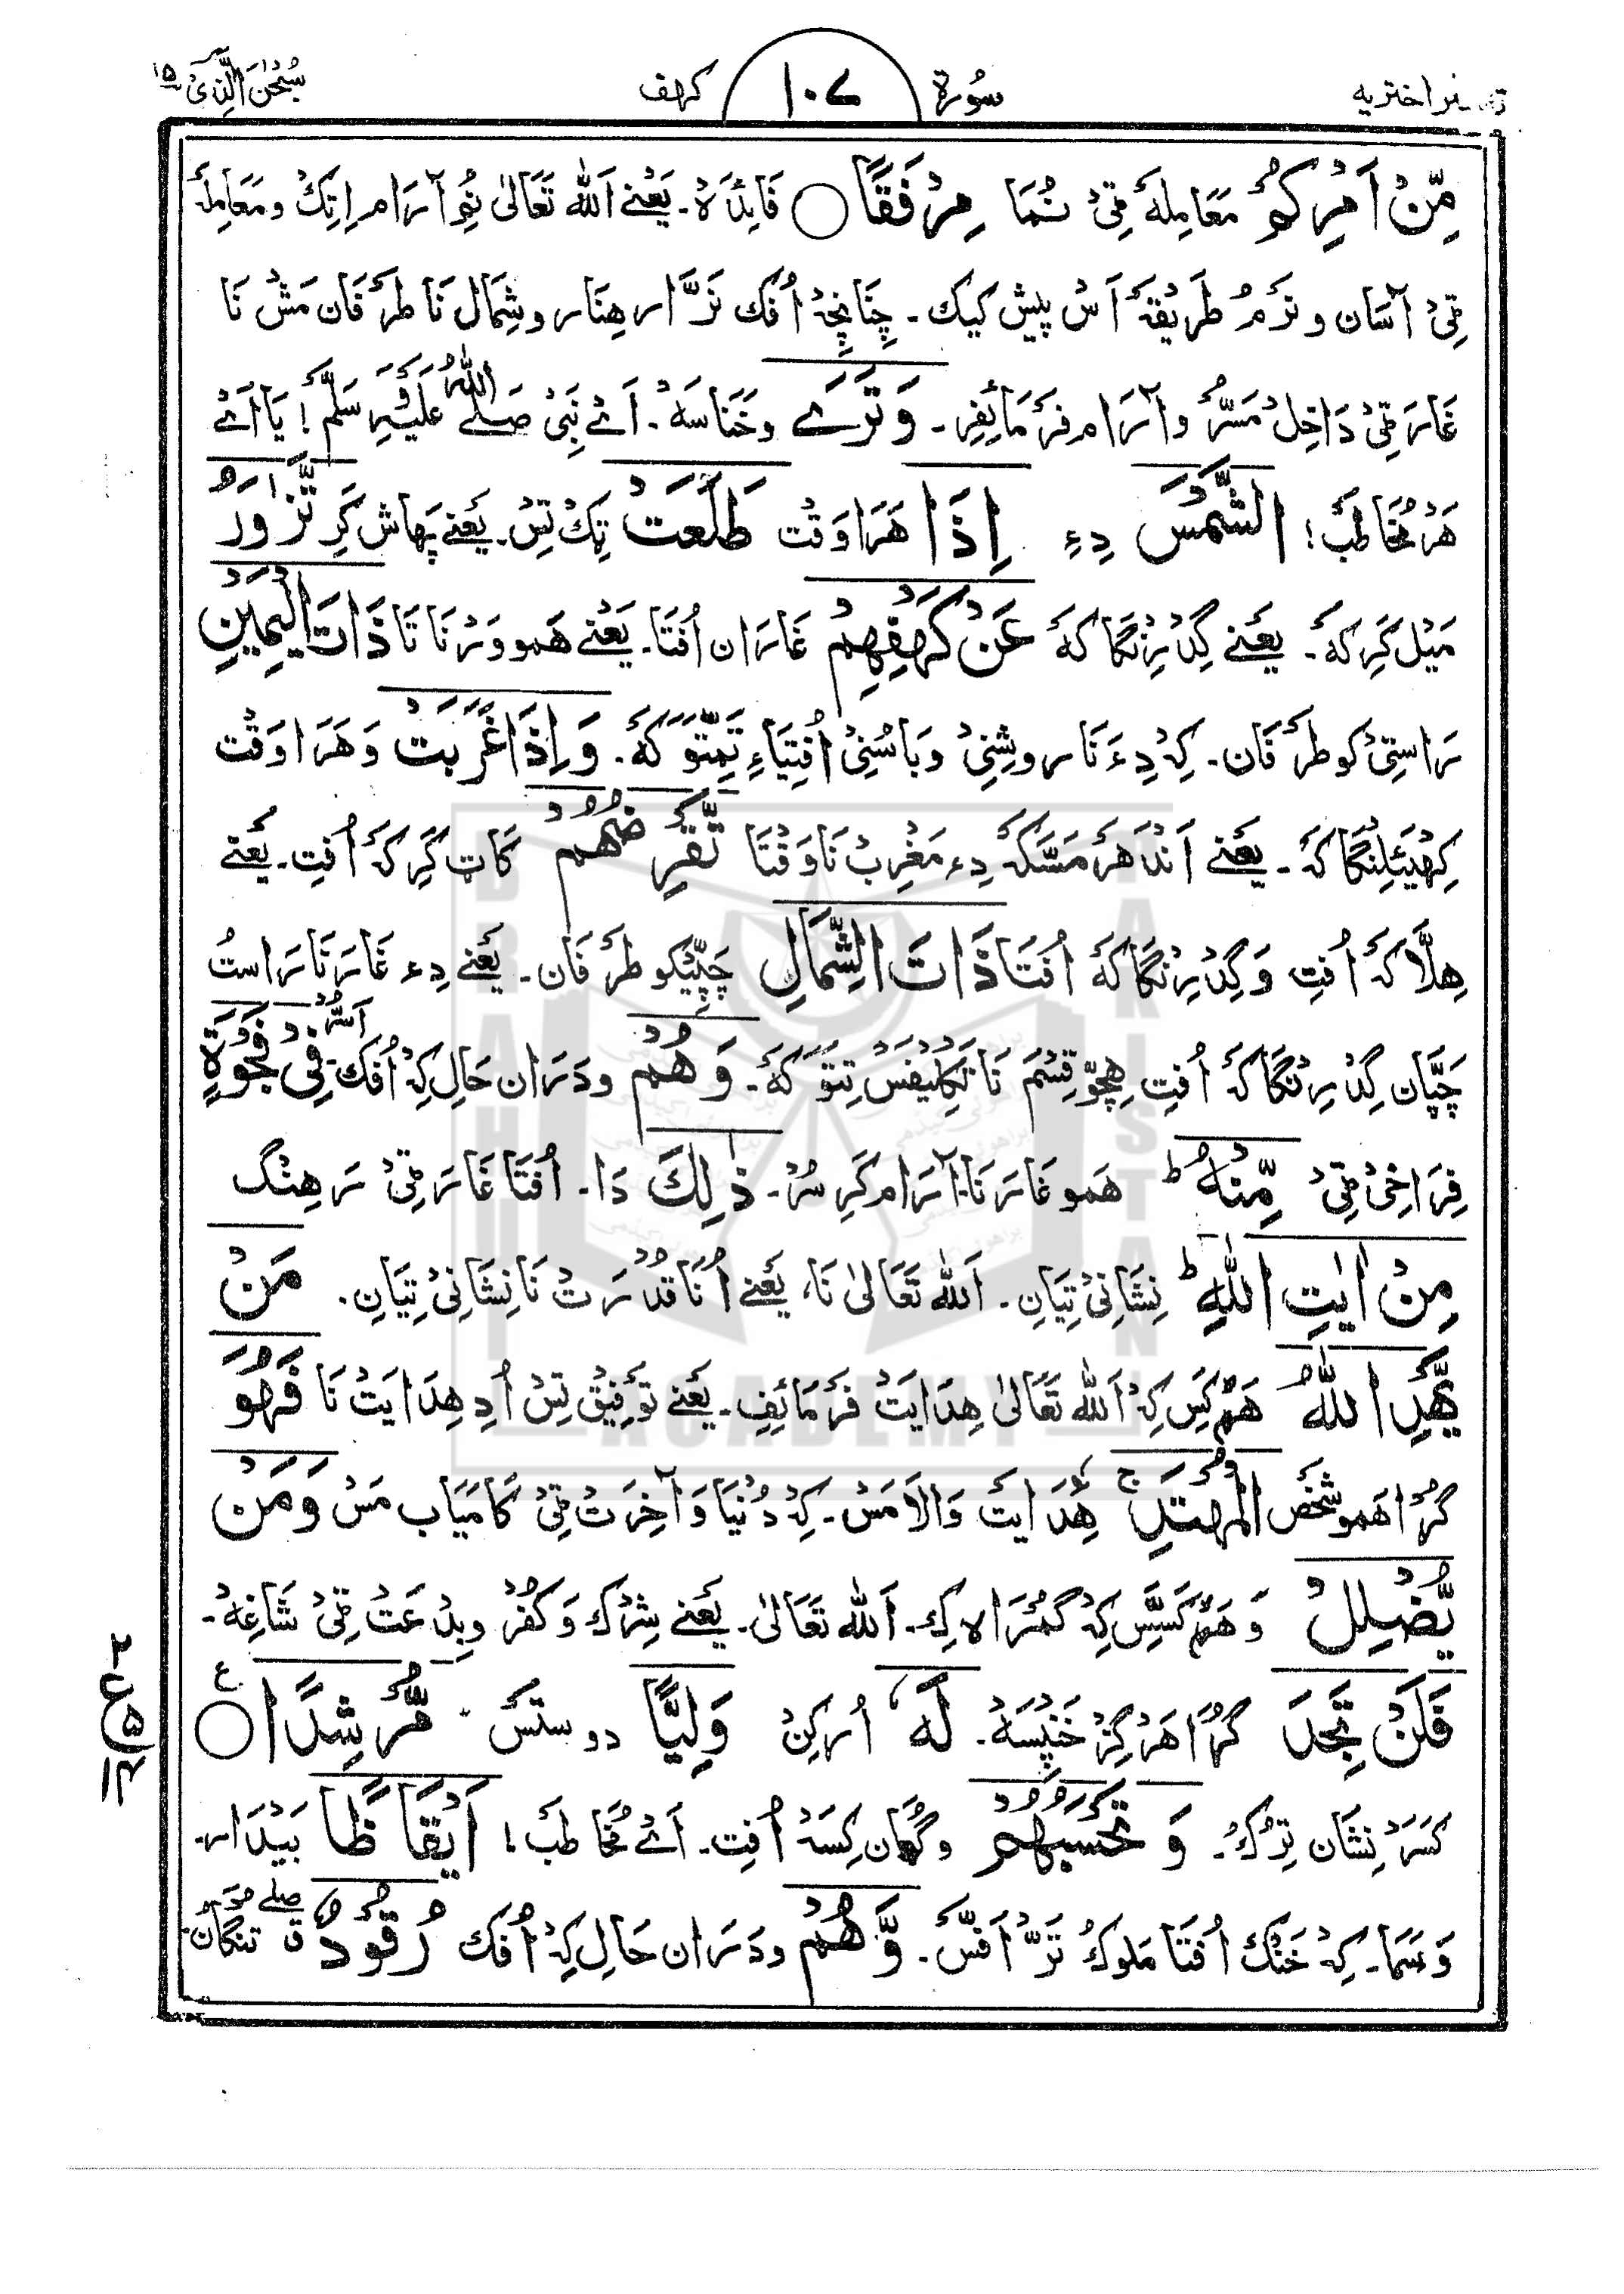 تفسیر اختریه سُورة ١٠٧ کهف سُبْحٰنَ الَّذِیْ ١٥
مِّنْ اَمْرِكُمْ مَعَامِلهَ ٹِیْ نُمَا مِرْفَقًا ○ فَائِدَہْ۔ یَعْنے اَللّٰه تَعَالیٰ نُمِ آرَام اِتِکْ و مَعَامِلهَ
ٹِیْ آسَان و نَرَمُ طَرِیْقَہَ اَسْ پیش کیک۔ چِنَانچِہْ اُفک تَرَّار هِنَار و شِمَال نَا طَرَفَان مَشْ نَا
غَارَ ٹِیْ دَاخِلْ مَسُّرْ و آرَام فَرْمَائِفِر۔ وَتَرَے و خَنَاسَهْ۔ اَےْ نَبِیْ صَلَے اللّٰهُ عَلَیْہِ وَ سَلَّمْ! یَا اَےْ
هَرْ مُخَاطَبْ! الشَّمْسَ دِءِ اِذَا هَرَا وَقْت طَلَعَت ٹِکْ تِسْ۔ یَعْنے پَهاش کَرِ تَّزٰوَرُ
مَیْل کَرِ کهَ۔ یَعْنے گِدْرِنْگَا کهَ عَنْ کَهْفِهِمْ غَارَان اُفْتَا۔ یَعْنے هَمو وَرْنَا تَا ذَاتَ الْیَمِیْنِ
رَاسْتِیْ کو طَرَفَان۔ کِہْ دِءَ نَا روشِنِیْ وَ بَاسُنِیْ اُفْتِیَاءِ تَمِتَّوْ کهَ۔ وَاِذَا غَرَبَتْ وَ هَرَا وَقْت
کِهْئِلِنْگَا کهَ۔ یَعْنے اَنْدُ هَرْ مَسَّکہْ دِءِ مَغْرِبْ نَا وَقْتَا تَّقْرِضُهُمْ کَاٹ کَرِ کهَ اُفْتِ۔ یَعْنے
هِلَّا کهَ اُفْتِ وَ گِدْرِنْگَا کهَ اُفْتَا ذَاتَ الشِّمَالِ چَپِّیْکو طَرَفَان۔ یَعْنے دِءِ غَارَ نَا رَاسْتُ
چَپَّان گِدْرِنْگَا کهَ اُفْتِ هِچّو قِسْمَ نَا تَکْلِیْفَسْ تِتَوْ کهَ۔ وَهُمْ و دَرَان حَال کِہْ اُفک اَسُّرْ فِیْ فَجْوَةٍ
فِرَاخِیْ ٹِیْ مِّنْهُ ط هَمو غَارَ نَا۔ آرَام کَرِ سُرْ۔ ذٰلِكَ دَا۔ اُفْتَا غَارَ ٹِیْ رَهِنْگ
مِنْ اٰیٰتِ اللّٰهِ ط نِشَانِیْ تِیَانِ۔ اَللّٰه تَعَالیٰ نَا، یَعْنے اُنَا قُدْرَتْ نَا نِشَانِیْ تِیَانِ۔ مَنْ
یَّهْدِ اللّٰهُ هَرْکَسِ کِہْ اَللّٰه تَعَالیٰ هِدَایَتْ فَرْمَائِفِ۔ یَعْنے تَوْفِیْق تِسْ اُدِ هِدَایَتْ نَا فَهُوَ
گُرَا هَمو شَخْص الْمُهْتَدِ ج هِدَایَتْ وَالَا مَسْ۔ کِہْ دُنْیَا وَ آخِرَتْ ٹِیْ کَامْیَاب مَسْ وَمَنْ
یُّضْلِلْ وَ هَرْ کَسِّسِ کِہْ گُمْرَاہ کِک۔ اَللّٰه تَعَالیٰ۔ یَعْنے شِرْك وَ کُفْر و بِدْعَتْ ٹِیْ شَاغِہْ۔
فَلَنْ تَجِدَ گُرَا هَرْگِزْ خَنِیْسَہْ۔ لَهٗ اُر کِنْ وَلِیًّا دو ستَسْ۔ مُّرْشِدًا ○ ع
کَسَرْ نِشَان تِرْکُ۔ وَ تَحْسَبُهُمْ و گُمَان کِسَہْ اُفْتِ۔ اَےْ مُخَاطَبْ! اَیْقَاظًا بَیْدَار۔
وَ سَمَا۔ کِہْ خَنْک اُفْتَا مَلوکُ تَرْ اَفَسْ۔ وَّهُمْ و دَرَان حَال کِہْ اُفک رُقُوْدٌ ق صلے تنگان